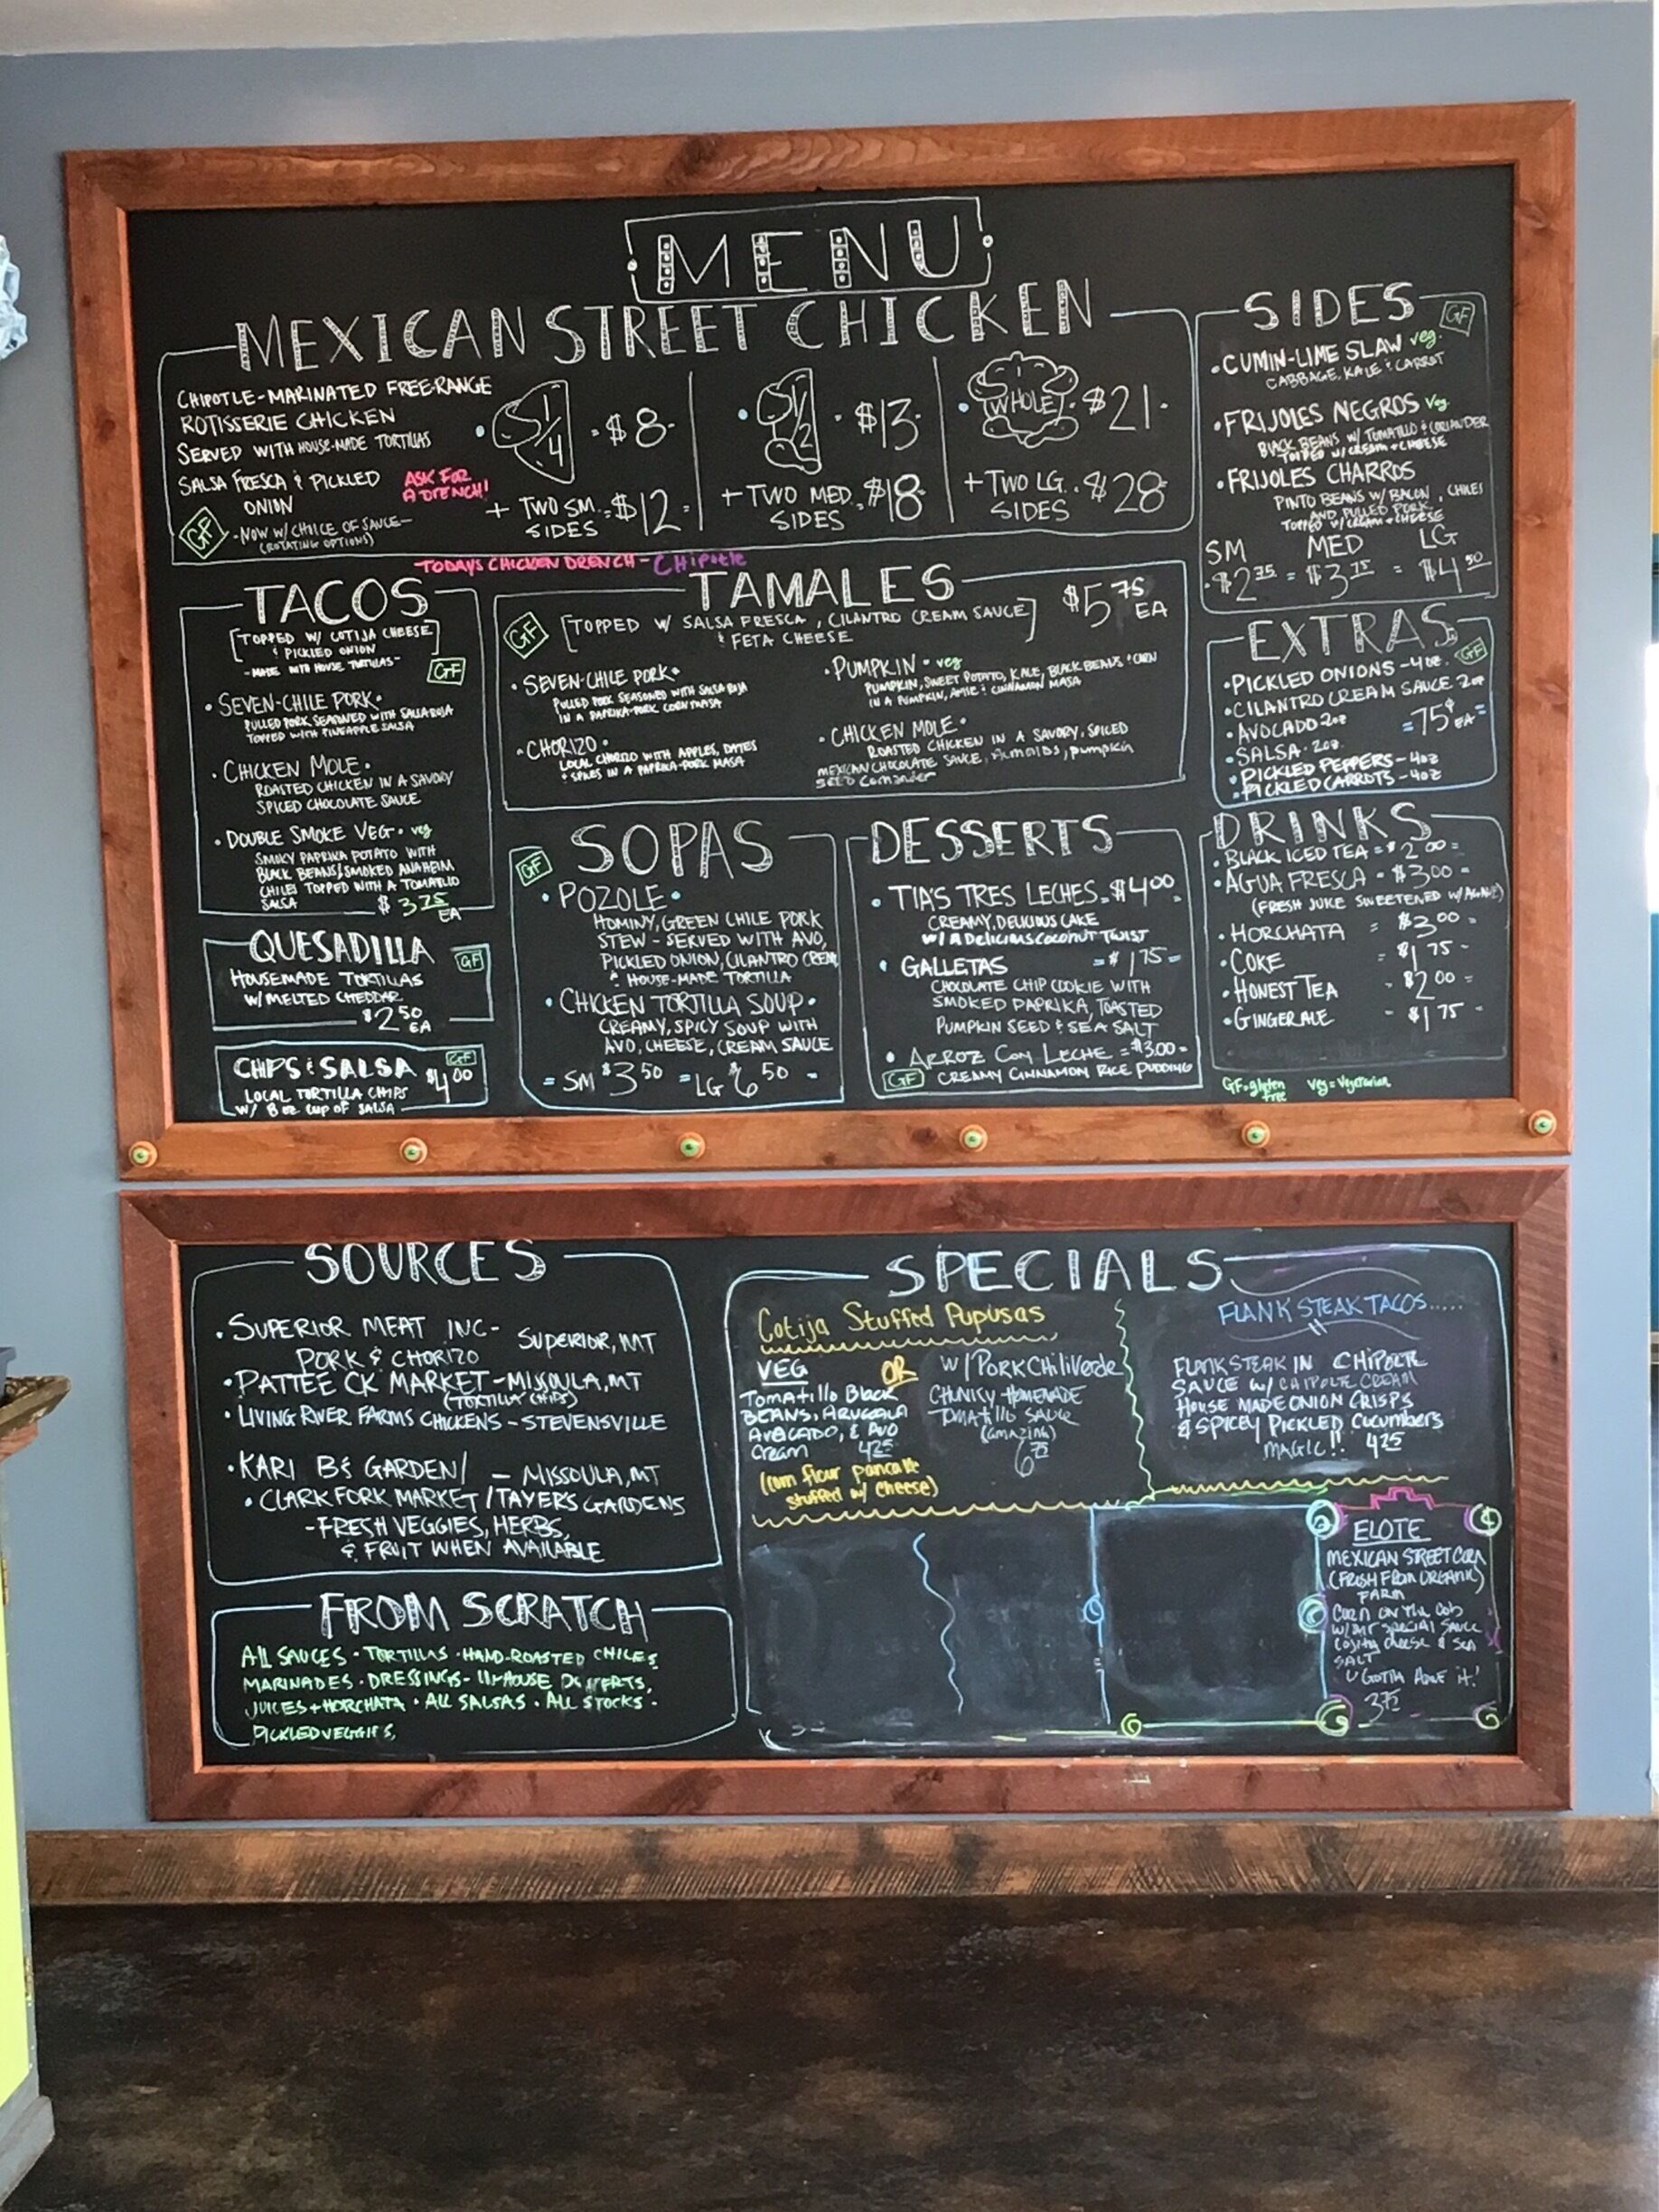 MENU
MEXICAN STREET CHICKEN
CHIPOTLE-MARINATED FREE-RANGE
ROTISSERIE CHICKEN
SERVED WITH HOUSE-MADE TORTILLAS
SALSA FRESCA & PICKLED
ONION
ASK FOR
A DRENCH!
GF
-NOW W/ CHOICE OF SAUCE-
(ROTATING OPTIONS)
1/4 $8
+ TWO SM. SIDES = $12
1/2 $13
+ TWO MED. SIDES = $18
WHOLE $21
+ TWO LG. SIDES $28
TODAYS CHICKEN DRENCH - CHIPOTLE
TACOS
[TOPPED W/ COTIJA CHEESE
& PICKLED ONION]
-MADE WITH HOUSE TORTILLAS-
GF
• SEVEN-CHILE PORK •
PULLED PORK SEASONED WITH SALSA ROJA
TOPPED WITH PINEAPPLE SALSA
• CHICKEN MOLE •
ROASTED CHICKEN IN A SAVORY
SPICED CHOCOLATE SAUCE
• DOUBLE SMOKE VEG • veg
SMOKY PAPRIKA POTATO WITH
BLACK BEANS/SMOKED ANAHEIM
CHILES TOPPED WITH A TOMATILLO
SALSA
$3.75 EA
QUESADILLA
GF
HOUSEMADE TORTILLAS
W/ MELTED CHEDDAR
$2.50 EA
CHIPS & SALSA
GF
$4.00
LOCAL TORTILLA CHIPS
W/ 8 oz cup of SALSA
TAMALES
$5.75 EA
GF
[TOPPED W/ SALSA FRESCA, CILANTRO CREAM SAUCE
& FETA CHEESE]
• SEVEN-CHILE PORK •
PULLED PORK SEASONED WITH SALSA ROJA
IN A PAPRIKA-PORK CORN MASA
• CHORIZO •
LOCAL CHORIZO WITH APPLES, DATES
+ SPICES IN A PAPRIKA-PORK MASA
• PUMPKIN • veg
PUMPKIN, SWEET POTATO, KALE, BLACK BEANS + CORN
IN A PUMPKIN, & CINNAMON MASA
• CHICKEN MOLE •
ROASTED CHICKEN IN A SAVORY, SPICED
MEXICAN CHOCOLATE SAUCE, Almonds, pumpkin
SEED
SOPAS
GF
• POZOLE •
HOMINY, GREEN CHILE PORK
STEW - SERVED WITH AVO,
PICKLED ONION, CILANTRO CREAM
& HOUSE-MADE TORTILLA
• CHICKEN TORTILLA SOUP •
CREAMY, SPICY SOUP WITH
AVO, CHEESE, CREAM SAUCE
= SM $3.50 = LG $6.50 -
DESSERTS
• TIA'S TRES LECHES = $4.00
CREAMY, DELICIOUS CAKE
W/ A Delicious Coconut TWIST
• GALLETAS = $1.75 =
CHOCOLATE CHIP COOKIE WITH
SMOKED PAPRIKA, TOASTED
PUMPKIN SEED & SEA SALT
• ARROZ CON LECHE = $3.00 -
GF CREAMY CINNAMON RICE PUDDING
SIDES
GF
• CUMIN-LIME SLAW veg.
CABBAGE, KALE & CARROT
• FRIJOLES NEGROS veg.
BLACK BEANS W/ TOMATILLO & CORIANDER
TOPPED W/ CREAM + CHEESE
• FRIJOLES CHARROS
PINTO BEANS W/ BACON, CHILES
AND PULLED PORK
TOPPED W/ CREAM + CHEESE
SM MED LG
$2.75 = $3.75 = $4.50
EXTRAS
GF
• PICKLED ONIONS - 4 oz.
• CILANTRO CREAM SAUCE 2oz
• AVOCADO 2oz
= 75¢ EA =
• SALSA - 2oz.
• PICKLED PEPPERS - 4oz
• PICKLED CARROTS - 4oz
DRINKS
• BLACK ICED TEA = $2.00 =
• AGUA FRESCA = $3.00 -
(FRESH JUICE SWEETENED W/ AGAVE)
• HORCHATA = $3.00 -
• COKE = $1.75 -
• HONEST TEA - $2.00 =
• GINGER ALE - $1.75 -
GF = gluten free Veg = Vegetarian
SOURCES
• SUPERIOR MEAT INC - SUPERIOR, MT
PORK & CHORIZO
• PATTEE CK MARKET - MISSOULA, MT
(TORTILLA CHIPS)
• LIVING RIVER FARMS CHICKENS - STEVENSVILLE
• KARI B'S GARDEN/ - MISSOULA, MT
• CLARK FORK MARKET / TAYER'S GARDENS
- FRESH VEGGIES, HERBS,
& FRUIT WHEN AVAILABLE
FROM SCRATCH
ALL SAUCES • TORTILLAS • HAND-ROASTED CHILES
MARINADES • DRESSINGS - IN-HOUSE DESSERTS,
JUICES + HORCHATA • ALL SALSAS • ALL STOCKS -
PICKLED VEGGIES,
SPECIALS
Cotija Stuffed Pupusas
VEG
Tomatillo Black
BEANS, ARUGULA
AVOCADO, & AVO
Cream 4.25
OR
W/ PORK CHILI VERDE
CHUNKY HOMEMADE
TOMATILLO SAUCE
(amazing)
6.75
(corn flour pancake
stuffed w/ cheese)
FLANK STEAK TACOS.....
FLANK STEAK IN CHIPOTLE
SAUCE W/ CHIPOTLE CREAM
HOUSE MADE ONION CRISPS
& SPICEY PICKLED CUCUMBERS
MAGIC!! 4.25
ELOTE
MEXICAN STREET CORN
(FRESH FROM ORGANIC)
FARM
CORN ON THE COB
W/ OUR SPECIAL SAUCE
COTIJA cheese & SEA
SALT
U GOTTA HAVE IT!
3.75